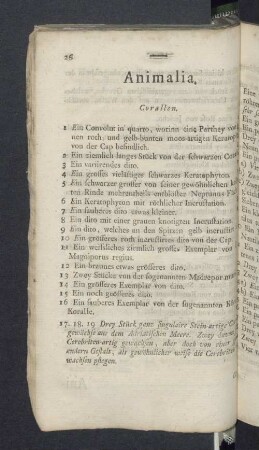 26
Animalia,
Corallen.
1 Ein Convolut in quarto, worinn eine Parthey
nen roth und gelb-bunten moos-artigen
von der Cap befindlich.
2 Ein ziemlich langes Stück von der schwarzen
3 Ein variirendes dito.
4 Ein grosses vielästiger schwarzes Keratophyton.
5 Ein schwarzer grosser von seiner gewöhnlichen
ten Rinde mehrentheils entblöster Neptunus
6 Ein Keratophyton mit röthlicher Incrustation.
7 Ein sauberes dito etwas kleiner.
8 Ein dito mit einer grauen knotigen Incrustation.
9 Ein dito, welches an den Spitzen gelb incrustirt
10 Ein grösseres roth incrustirtes dito von der Cap.
11 Ein weissliches ziemlich grosses Exemplar von
regius.
12 Ein braunes etwas grösseres dito.
13 Zwey Stücke von der sogenannten
14 Ein grösseres Exemplar von dito.
15 Ein noch grösseres dito.
16 Ein sauberes Exemplar von der sogenannten
Koralle.
17. 18. 19 Drey Stück ganz singulaire Stein-artige
gewächse aus dem Adriatischen Meere. Zwey
Cerebriten-artig gewachsen, aber doch von einer
andern Gestalt, als gewöhnlicher weise die
wachsen pflegen.